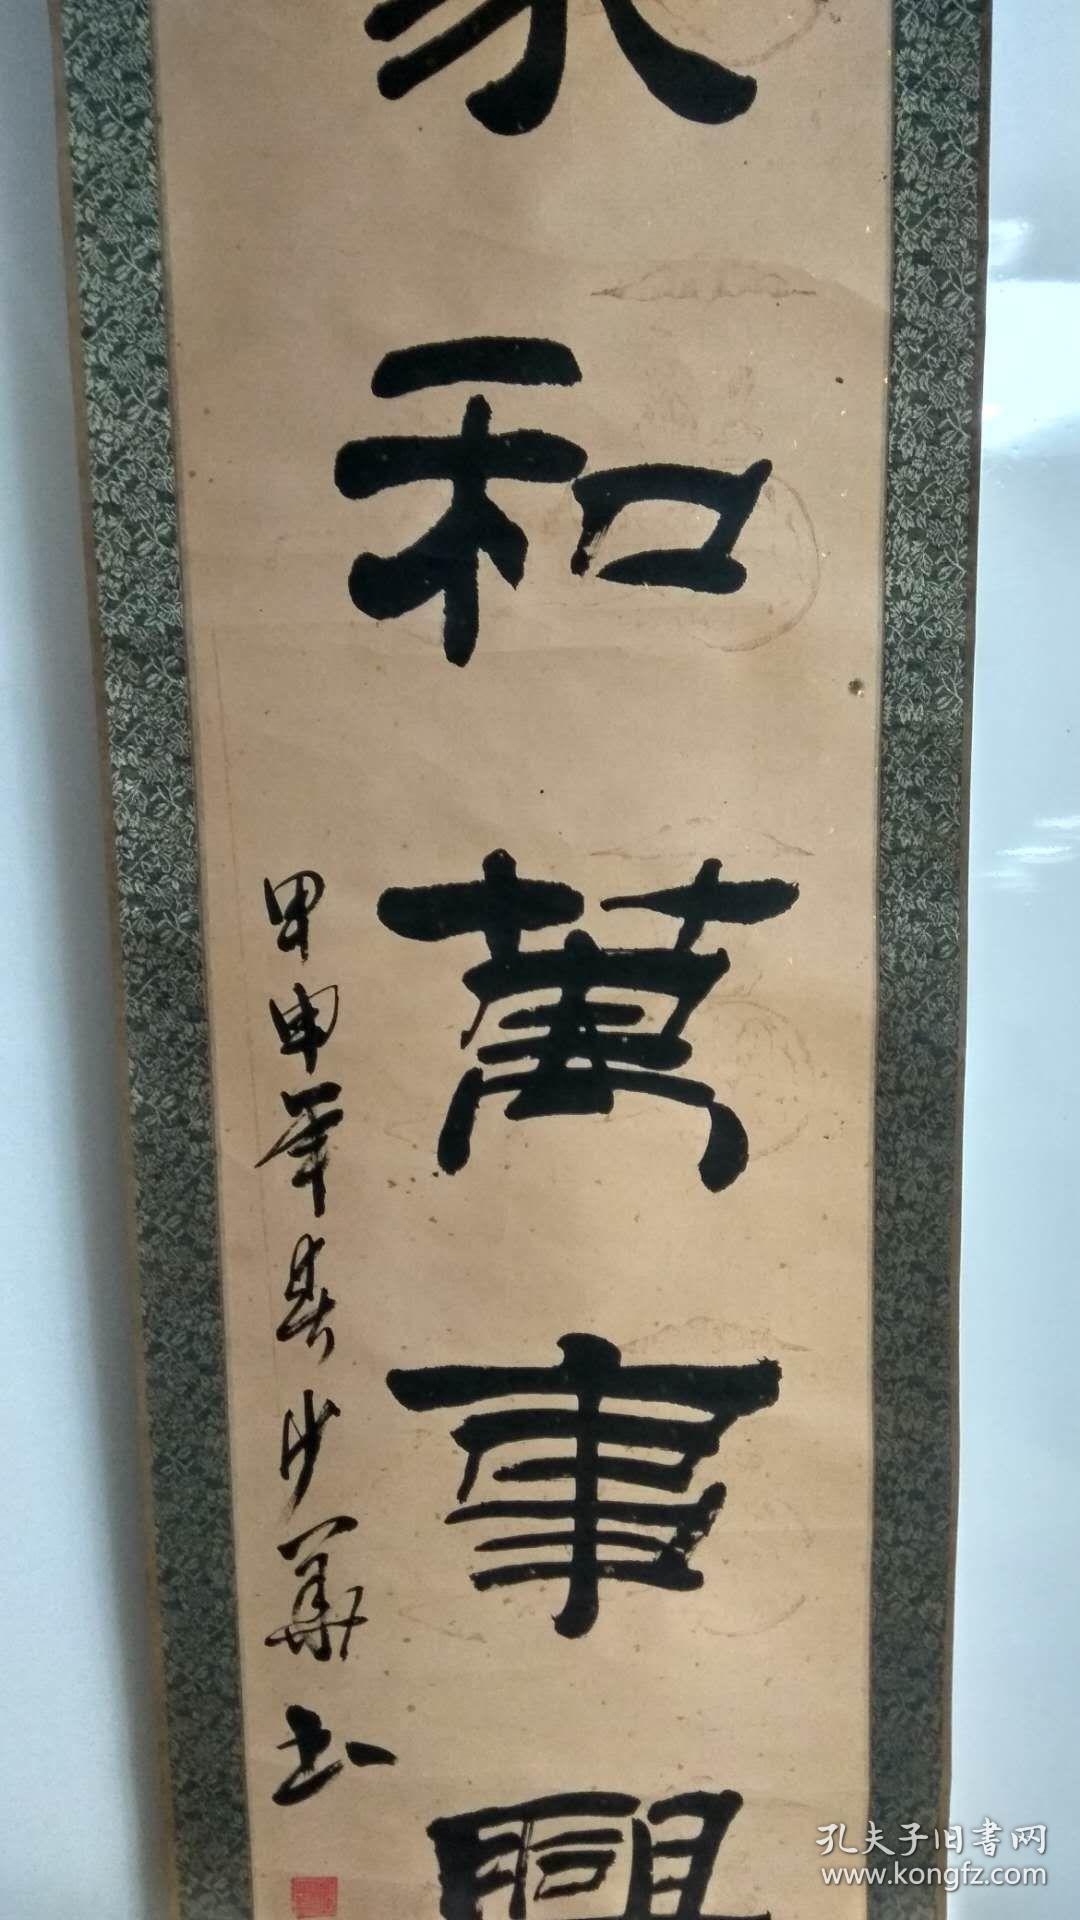 家和萬事興
甲申年春少華書
孔夫子旧書网
www.kongfz.com